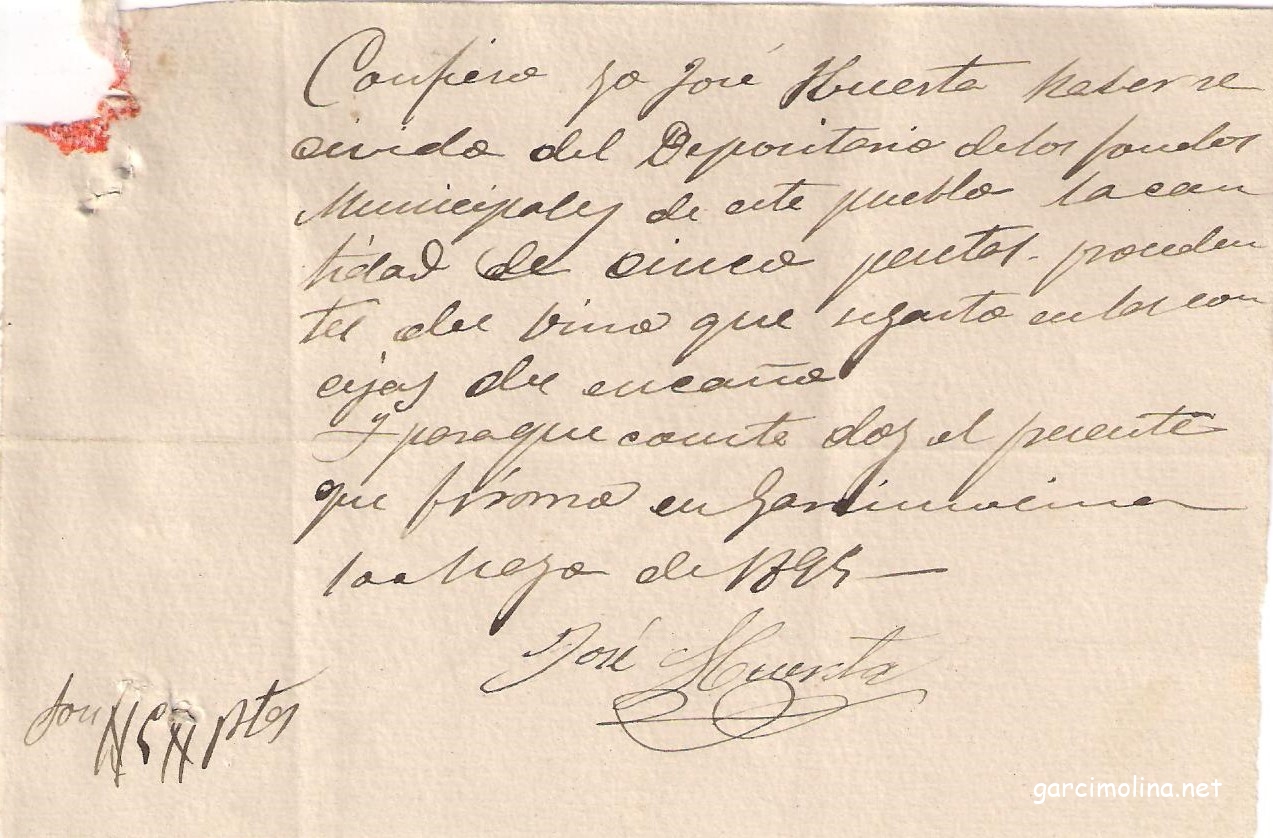 Confieso yo José Huerta haber re
civido del Depositario de los fondos
Municipales de este pueblo la can
tidad de cinco pesetas proceden
tes del vino que se gasto en los con
cejos del encaño
Y para que conste doy el presente
que firmo en Garcimolina
1 o a Mayo de 1895
José Huerta
Son #5# ptas
garcimolina.net